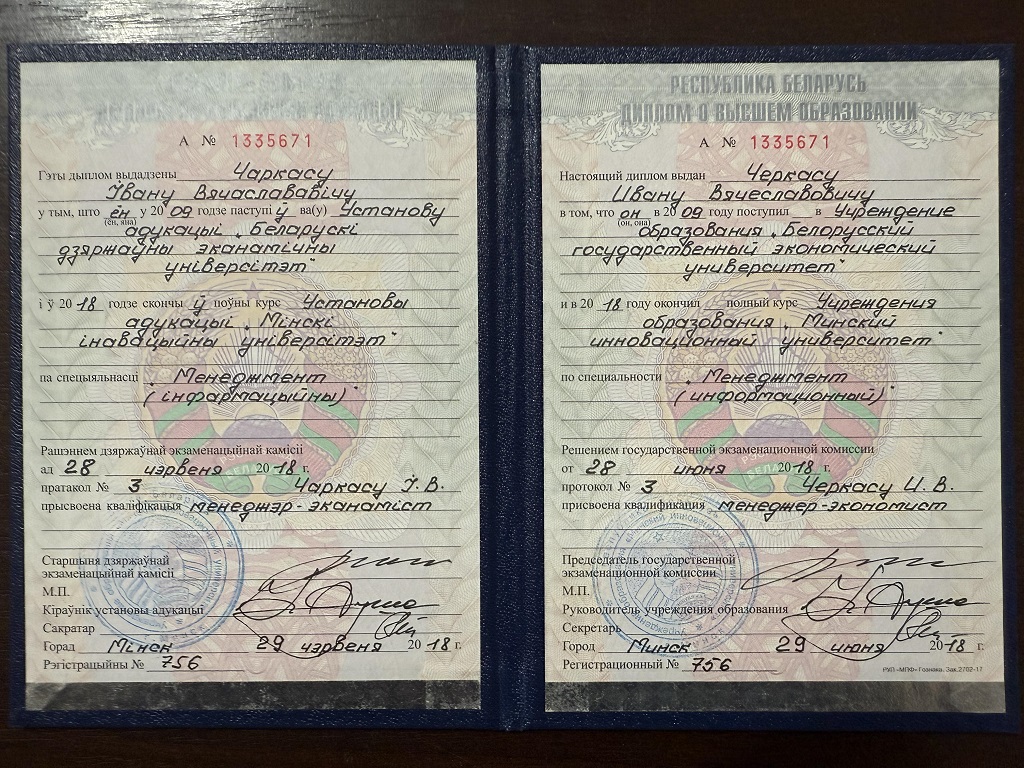 А № 1335671
Гэты дыплом выдадзены Чаркасу
Івану Вячаслававічу
у тым, што ён у 2009 годзе паступіў ва(у) Установу
(ён, яна)
адукацыі „Беларускі
дзяржаўны эканамічны
універсітэт"
і ў 2018 годзе скончыў поўны курс Установы
адукацыі „Мінскі
інавацыйны універсітэт"
па спецыяльнасці „Менеджмент
(інфармацыйны)"
Рашэннем дзяржаўнай экзаменацыйнай камісіі
ад 28 чэрвеня 2018 г.
пратакол № 3 Чаркасу І. В.
прысвоена кваліфікацыя менеджэр-эканаміст
Старшыня дзяржаўнай
экзаменацыйнай камісіі
М.П.
Кіраўнік установы адукацыі
Сакратар
Горад Мінск 29 чэрвеня 2018 г.
Рэгістрацыйны № 756
РЕСПУБЛИКА БЕЛАРУСЬ
ДИПЛОМ О ВЫСШЕМ ОБРАЗОВАНИИ
А № 1335671
Настоящий диплом выдан Черкасу
Ивану Вячеславовичу
в том, что он в 2009 году поступил в Учреждение
(он, она)
образования „Белорусский
государственный экономический
университет"
и в 2018 году окончил полный курс Учреждения
образования „Минский
инновационный университет"
по специальности „Менеджмент
(информационный)"
Решением государственной экзаменационной комиссии
от 28 июня 2018 г.
протокол № 3 Черкасу И. В.
присвоена квалификация менеджер-экономист
Председатель государственной
экзаменационной комиссии
М.П.
Руководитель учреждения образования
Секретарь
Город Минск 29 июня 2018 г.
Регистрационный № 756
РУП «МПФ» Гознака. Зак. 2702-17